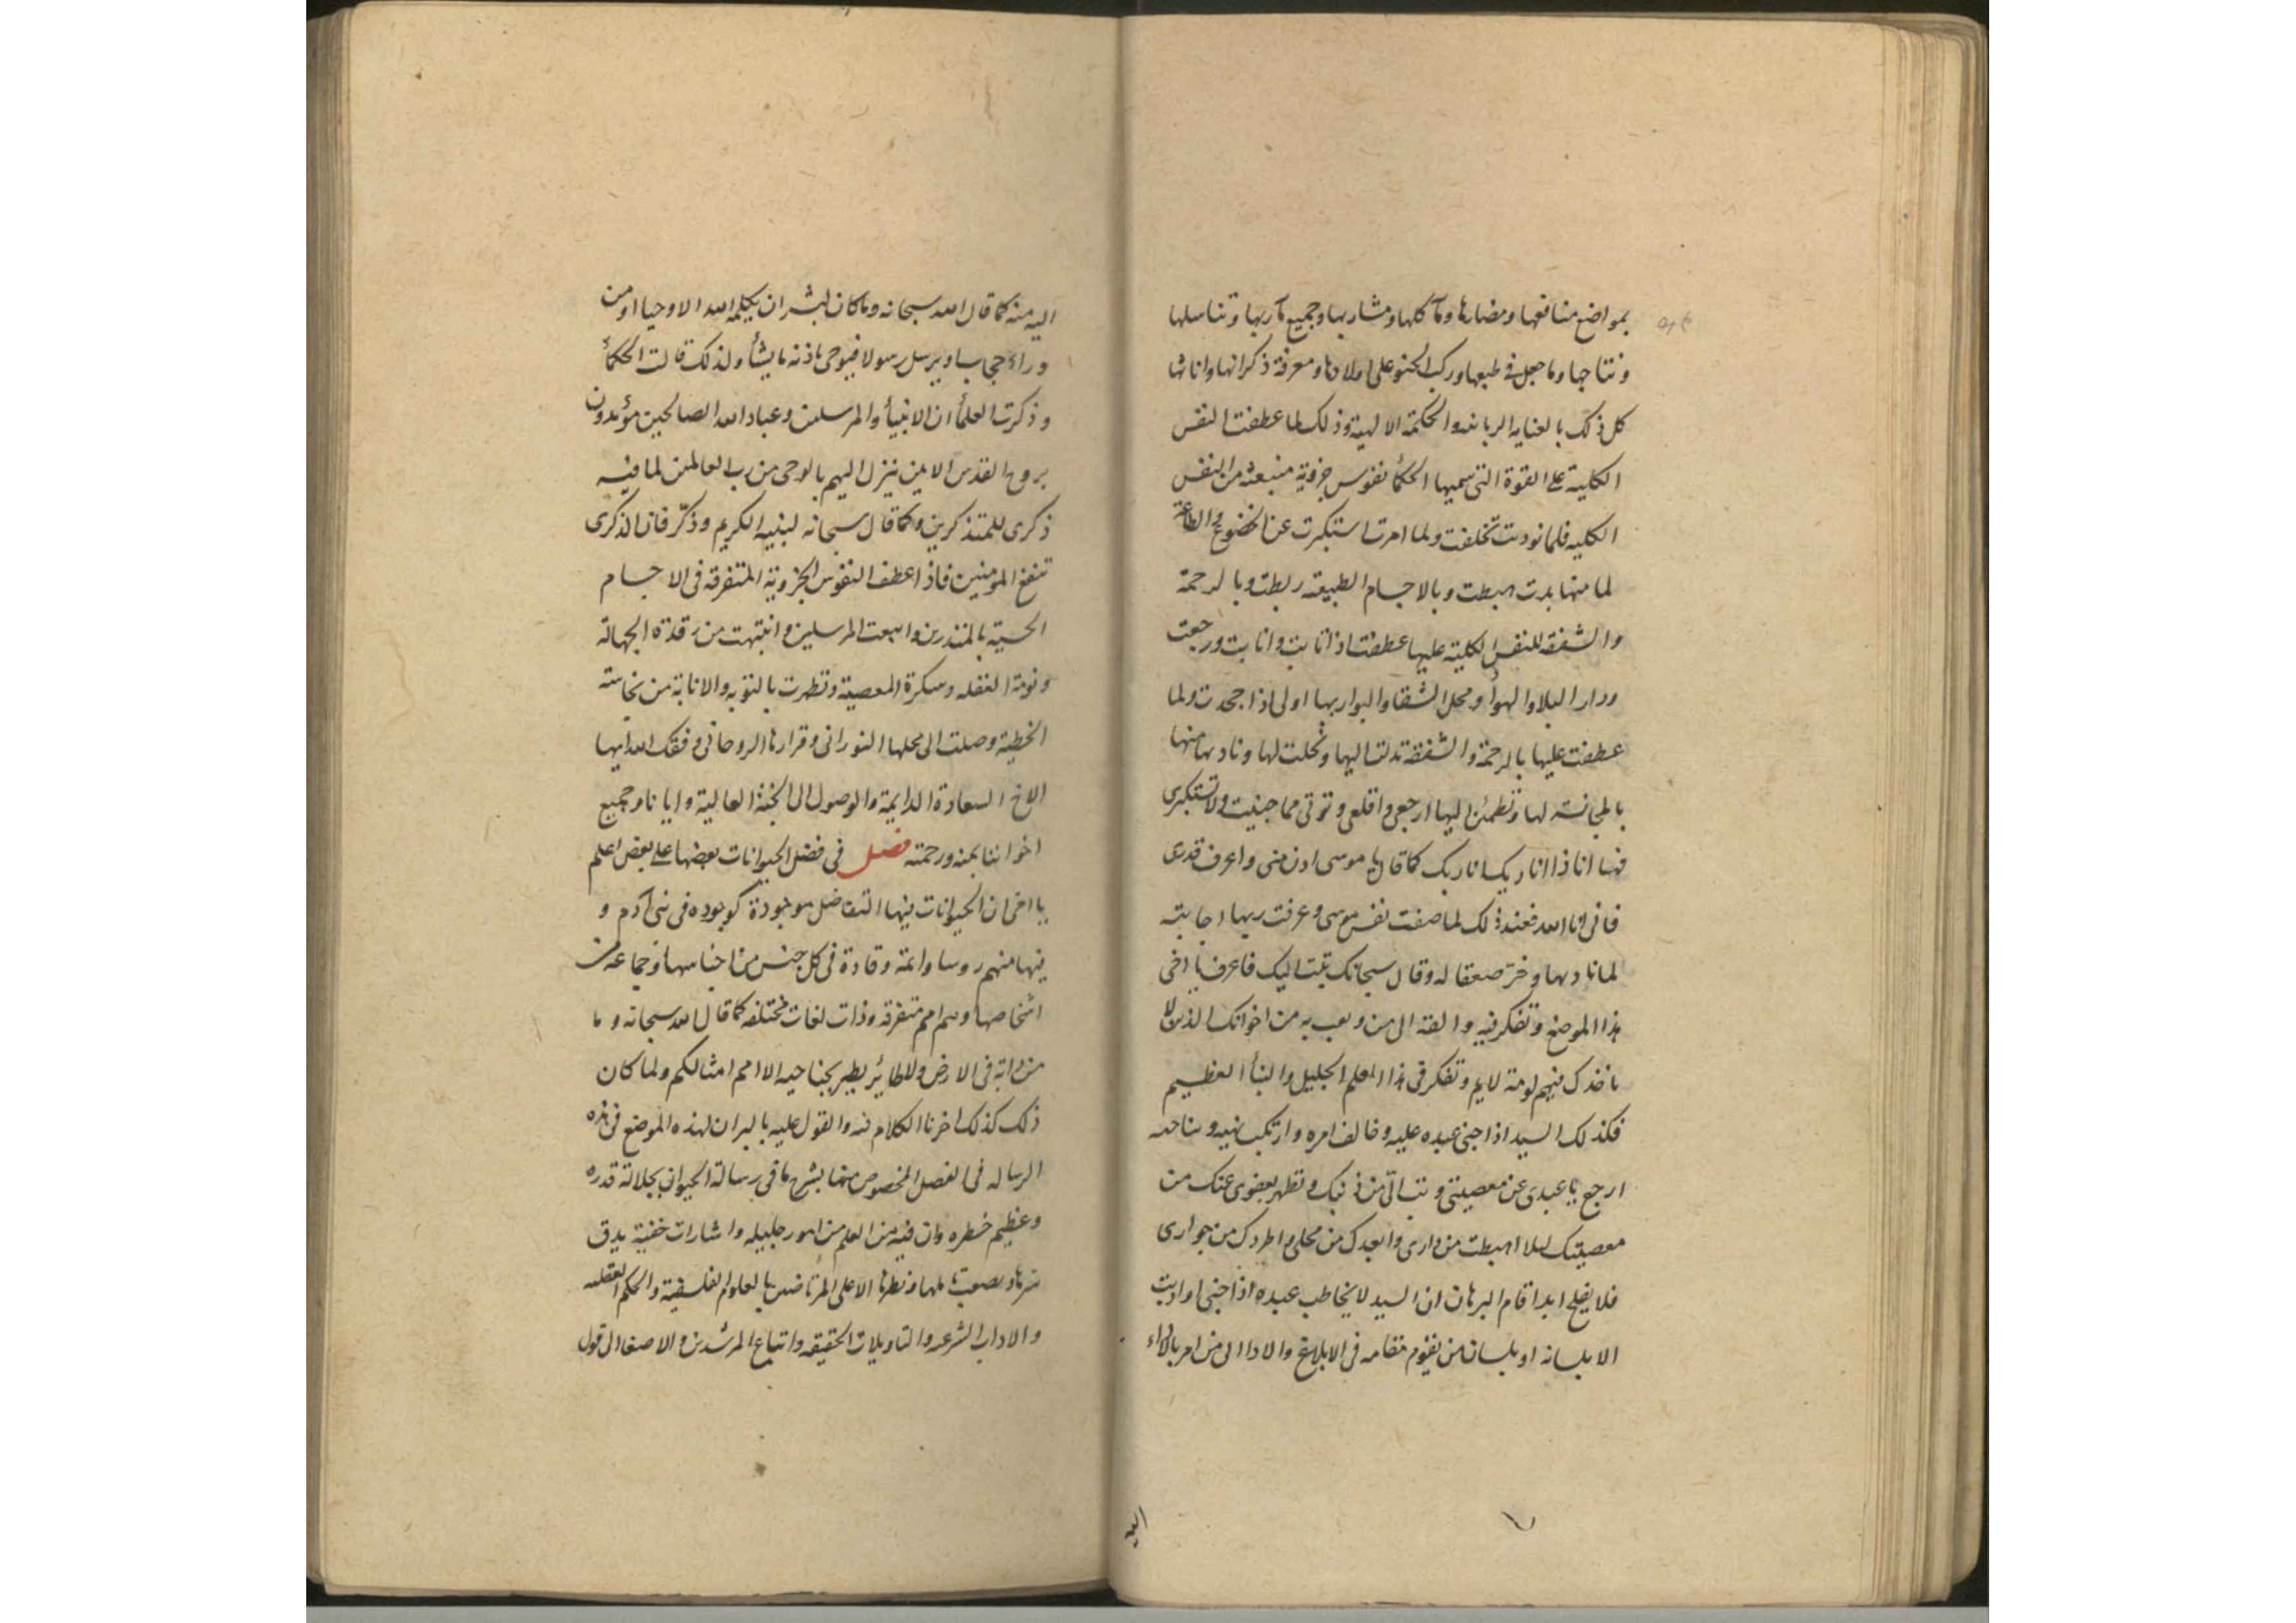 بمواضع منافعها ومضارها ومآكلها ومشاربها وجميع مآربها وتناسلها
ونتاجها وما جعل فى طبعها وركب الحنو على اولادها ومعرفة ذكرانها واناثها
كل ذلك بالعنايه الربانيه والحكمة الالهية وذلك لما عطفت النفس
الكلية على القوة التى تسميها الحكمأ نفوس جزوية منبعثه من النفس
الكليه فلما نوديت تخلفت ولما امرت استكبرت عن الخضوع والطاعة
لما منها بدت اهبطت وبالاجسام الطبيعه ربطت وبالرحمة
والشفقه للنفس الكلية عليها عطفت اذ اتابت وانابت ورجعت
ودار البلا والهوأ ومحل الشقا والبوار بها اولى اذا جحدت ولما
عطفت عليها بالرحمة والشفقة تدلت اليها وتجلت لها ونادتها منها
بالمجانسه لها وتطمئن اليها ارجعى واقلعى وتوتى مما جنيت ولا تستكبرى
فها انا ذا انا ربك انا ربك كما قال يا موسى ادن منى واعرف قدرى
فانى انا الله فعند ذلك لما صفت نفس موسى وعرفت ربها اجابته
لما نادها وخرّ صعقا له وقال سبحانك تبت اليك فاعرف يا اخى
هذا الموضع وتفكر فيه والقه الى من وثق به من اخوانك الذين لا
ياخذك فيهم لومة لايم وتفكر فى هذا العلم الجليل والنبأ العظيم
فكذلك السيد اذا جنى عبده عليه وخالف امره وارتكب نهيه
ارجع يا عبدى عن معصيتى وتب الىّ من ذنبك وتطهر بعفوى عنك من
معصيتك ليلا اهبطت من دارى وابعدك من محلى واطردك من جوارى
فلا يفلح ابدا قام البرهان ان السيد لا يخاطب عبده اذا جنى او اذنب
الا بلسانه او بلسان من يقوم مقامه فى الابلاغ والادا الى من امر بالاداء
اليه
اليه منه كما قال الله سبحانه وما كان لبشر ان يكلمه الله الا وحيا او من
ورائ حجاب او يرسل رسولا فيوحى باذنه ما يشأ ولذلك قالت الحكمأ
وذكرت العلمأ ان الانبيأ والمرسلين وعباد الله الصالحين مؤيدون
بروح القدس الامين ينزل اليهم بالوحى من رب العالمين لما فيه
ذكرى للمتذكرين وكما قال سبحانه لبنيه الكريم وذكّر فان الذكرى
تنفع المؤمنين فاذا عطف النفوس الجزوية المتفرقه فى الاجسام
الحسية بالمنذرين واتبعت المرسلين وانتبهت من رقدة الجهالة
ونومة الغفله وسكرة المعصية وتطهرت بالتوبه والانابة من نجاسته
الخطية وصلت الى محلها النورانى وقرارها الروحانى وفقك الله ايها
الاخ السعادة الدايمة والوصول الى الجنة العالية وايانا وجميع
اخواننا بمنه ورحمته فصل فى فضل الحيوانات بعضها على بعض اعلم
يا اخى ان الحيوانات بينها التفاضل موجودة كوجوده فى بنى آدم و
فيها منهم روسا وائمة وقادة فى كل جنس من اجناسها وجماعه من
اشخاصها وهم امم متفرقه وذات لغات مختلفه كما قال الله سبحانه وما
من دابة فى الارض ولا طائير يطير بجناحيه الا امم امثالكم ولما كان
ذلك كذلك اخرنا الكلام فيه والقول عليه بالبرهان لهذه الموضع فى هذه
الرساله فى الفصل المخصوص منها بشرح ما فى رسالة الحيوان بجلالة قدره
وعظيم خطره وان فيه من العلم من امور جليله واشارات خفية يدق
سرها ويصعب الا على المرتاضين بالعلوم الفلسفية والحكم العقليه
والاداب الشرعيه والتاويلات الحقيقه واتباع المرشدين والاصغا الى قول